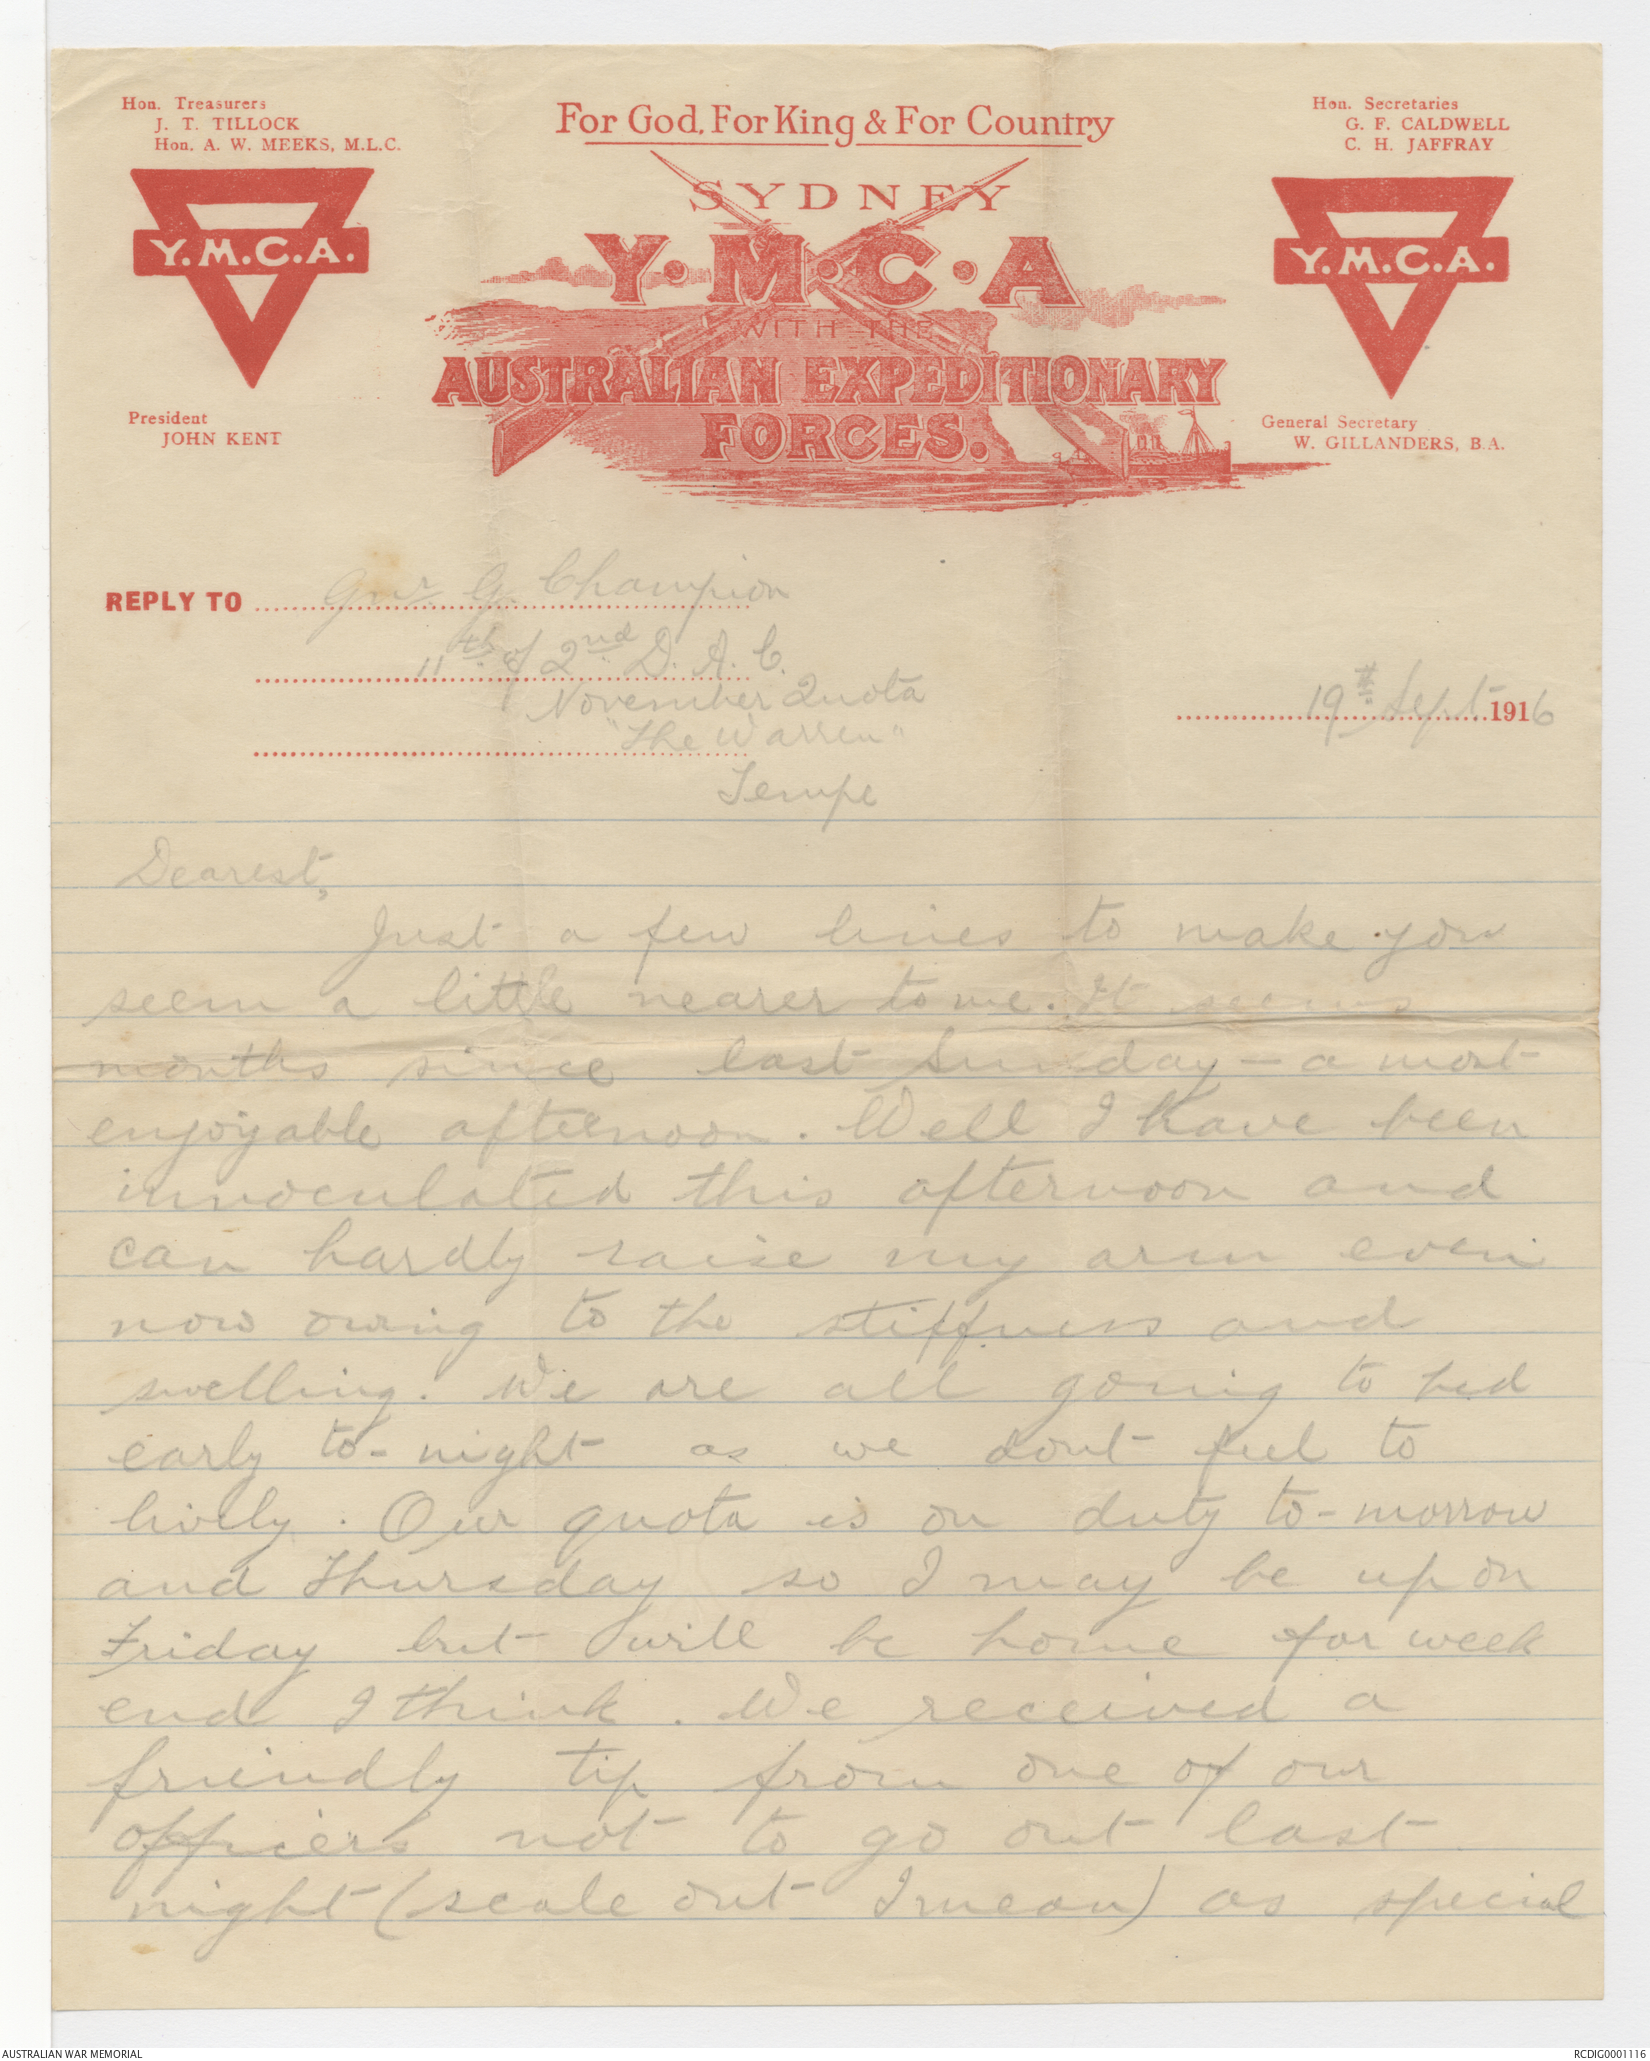 Hon. Treasurers
J. T. TILLOCK
Hon. A. W. MEEKS, M.L.C.
Y.M.C.A.
President
JOHN KENT
For God, For King & For Country
SYDNEY
Y.M.C.A
WITH THE
AUSTRALIAN EXPEDITIONARY
FORCES.
Hon. Secretaries
G. F. CALDWELL
C. H. JAFFRAY
Y.M.C.A.
General Secretary
W. GILLANDERS, B.A.
REPLY TO Gnr. G. Champion
11th of 2nd D. A. C.
November Quota
"The Warren"
Tempe
19th Sept 1916
Dearest,
Just a few lines to make you
seem a little nearer to me. It seems
months since last Sunday - a most
enjoyable afternoon. Well I have been
innoculated this afternoon and
can hardly raise my arm even
now owing to the stiffness and
swelling. We are all going to bed
early to-night as we dont feel to
lively. Our quota is on duty to-morrow
and Thursday so I may be up on
Friday but will be home for week
end I think. We received a
friendly tip from one of our
officers not to go out last
night (scale out I mean) as special
AUSTRALIAN WAR MEMORIAL
RCDIG0001116